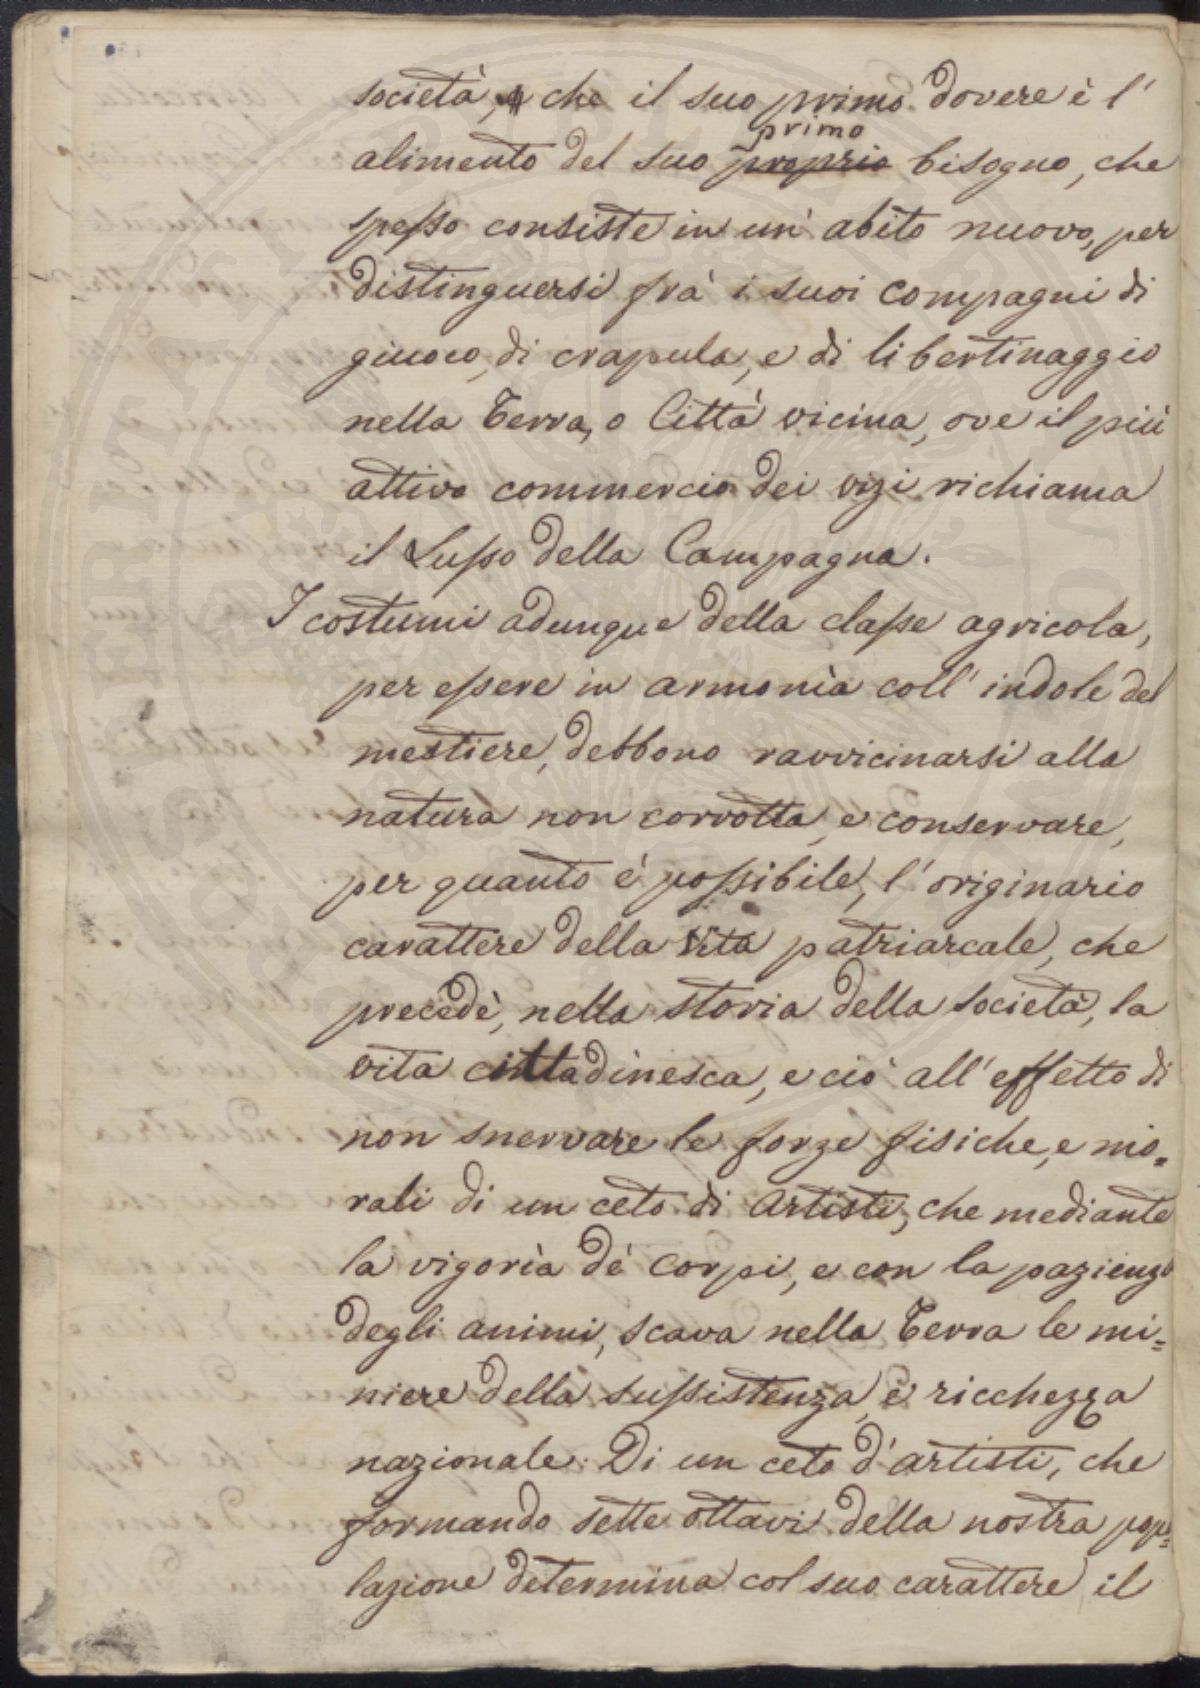 società, che il suo primo dovere è l'
primo
alimento del suo proprio bisogno, che
spesso consiste in un' abito nuovo, per
distinguersi frà i suoi compagni di
giuoco, di crapula, e di libertinaggio
nella Terra, o Città vicina, ove il più
attivo commercio dei vizi richiama
il Lusso della Campagna.
I costumi adunque della classe agricola,
per essere in armonìa coll' indole del
mestiere, debbono ravvicinarsi alla
natura non corrotta, e conservare,
per quanto è possibile, l' originario
carattere della vita patriarcale, che
precedè, nella storia della società, la
vita cittadinesca, e ciò all' effetto di
non snervare le forze fisiche, e mo=
rali di un ceto di Artisti, che mediante
la vigorìa de' corpi, e con la pazienza
degli animi, scava nella Terra le mi=
niere della sussistenza, e ricchezza
nazionale. Di un ceto d'artisti, che
formando sette ottavi della nostra popu=
lazione determina col suo carattere il